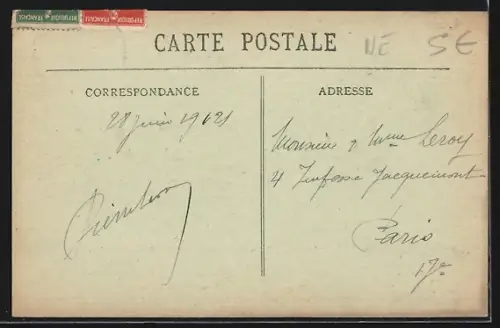 REPUBLIQUE FRANÇAISE REPUBLIQUE FRANÇAISE
CARTE POSTALE
NE 5E
CORRESPONDANCE
ADRESSE
28 juin 1921
Monsieur & Mme Leroy
4 Impasse Jacquemont
Paris
17e